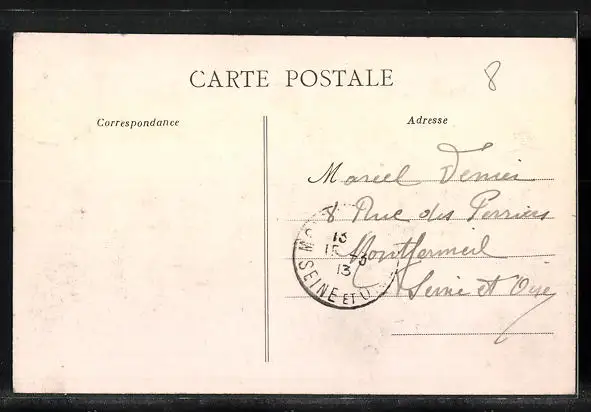 CARTE POSTALE
8
Correspondance
Adresse
Marcel
8 Rue des Perriers
Montfermeil
Seine et Oise
13
15 3
13
SEINE ET O